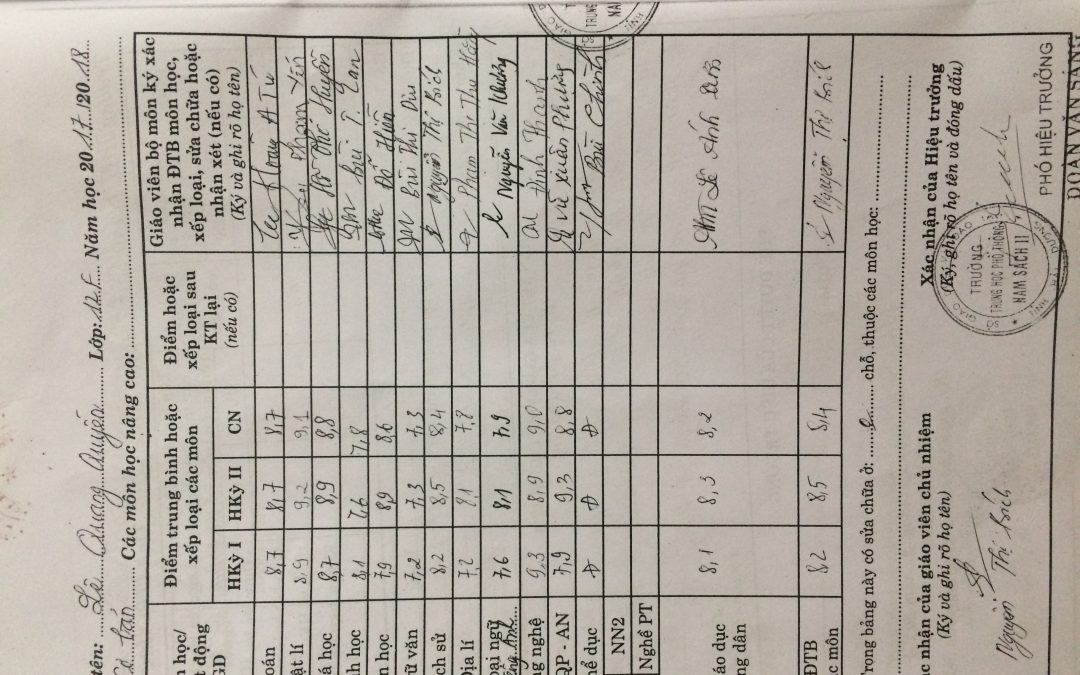 tên: Lê Quang Quyền Lớp: 12F Năm học 2017/2018
Các môn học nâng cao:
n học/ t động GD
Điểm trung bình hoặc xếp loại các môn
HKỳ I HKỳ II CN
Điểm hoặc xếp loại sau KT lại (nếu có)
Giáo viên bộ môn ký xác nhận ĐTB môn học, xếp loại, sửa chữa hoặc nhận xét (nếu có)
(Ký và ghi rõ họ tên)
oán 8,7 8,7 8,7
ật lí 8,9 9,2 9,1
á học 8,7 8,9 8,8
nh học 8,1 7,6 7,8
n học 7,9 8,9 8,6 Đỗ
ữ văn 7,2 7,3 7,3 Bùi Thị Dịu
ịch sử 8,2 8,5 8,4 Nguyễn Thị Bích
Địa lí 7,2 8,1 7,8 Phạm Thị Thu
oại ngữ 7,6 8,1 7,9 Nguyễn Văn
ng Anh
ng nghệ 9,3 8,9 9,0 Đinh Thanh
QP - AN 7,9 9,3 8,8 Vũ Xuân Phương
hể dục Đ Đ Đ Bùi
NN2
Nghề PT
áo dục ng dân 8,1 8,3 8,2 Lê Ánh
ĐTB c môn 8,2 8,5 8,4 Nguyễn Thị Bích
Trong bảng này có sửa chữa ở: chỗ, thuộc các môn học:
ác nhận của giáo viên chủ nhiệm
(Ký và ghi rõ họ tên)
Nguyễn Thị Bích
Xác nhận của Hiệu trưởng
(Ký, ghi rõ họ tên và đóng dấu)
TRƯỜNG
TRUNG HỌC PHỔ THÔNG
NAM SÁCH II
PHÓ HIỆU TRƯỞNG
ĐOÀN VĂN SÁNG